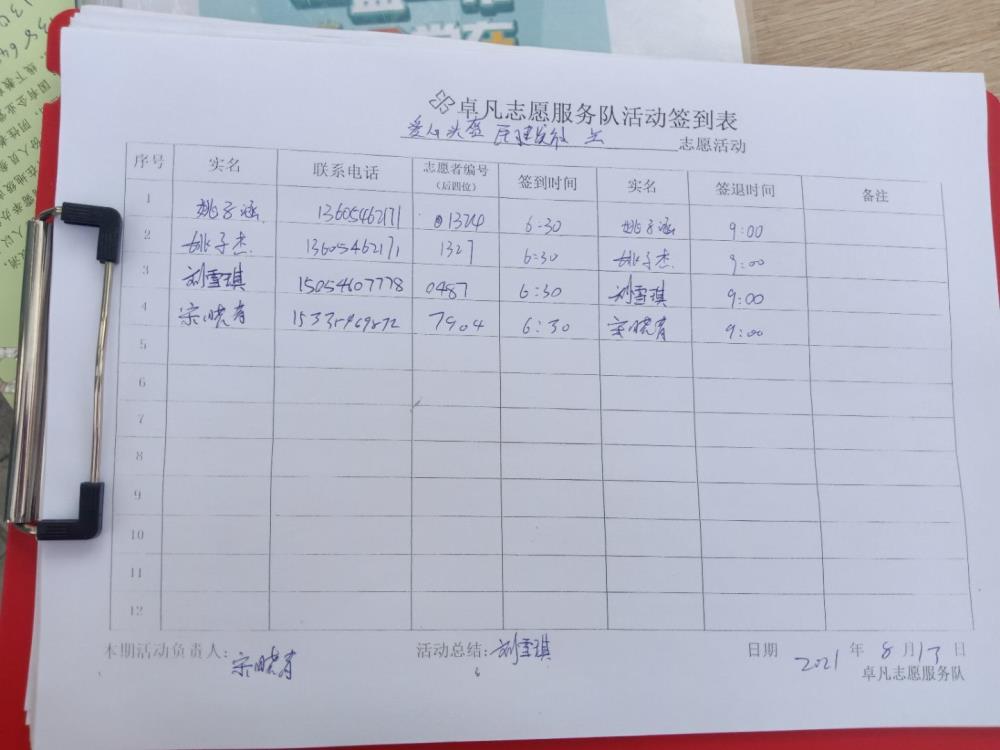 卓凡志愿服务队活动签到表
爱心头盔 志愿活动
序号 实名 联系电话 志愿者编号(后四位) 签到时间 实名 签退时间 备注
1 姚子涵 13605462171 1324 6:30 姚子涵 9:00
2 姚子杰 13605462171 1327 6:30 姚子杰 9:00
3 刘雪琪 15054607778 0487 6:30 刘雪琪 9:00
4 宋晓青 15335969872 7904 6:30 宋晓青 9:00
5
6
7
8
9
10
11
12
本期活动负责人: 宋晓青 活动总结: 刘雪琪 日期 2021 年 8 月 13 日
卓凡志愿服务队